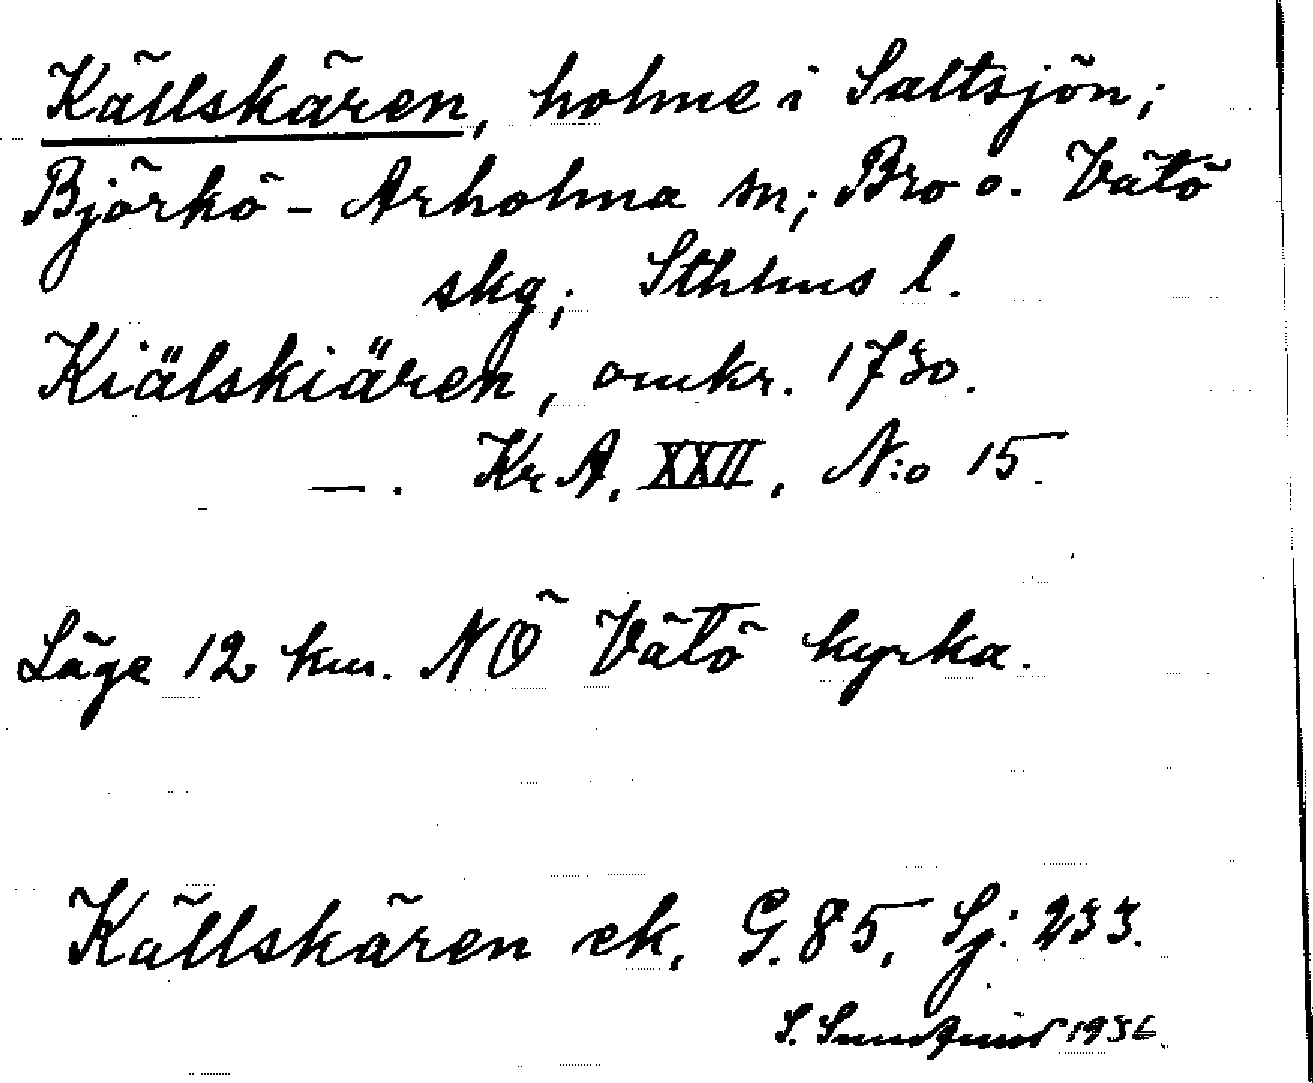 Källskären, holme i Saltsjön;
Björkö - Arholma sn; Bro o. Vätö
skg; Sthlms l.
Kiälskiären, omkr. 1730.
—. Kr A. XXII, N:o 15.
Läge 12 km. NÖ Vätö kyrka.
Källskären ek. G. 85, Sj: 233.
S. Sundqvist 1936.